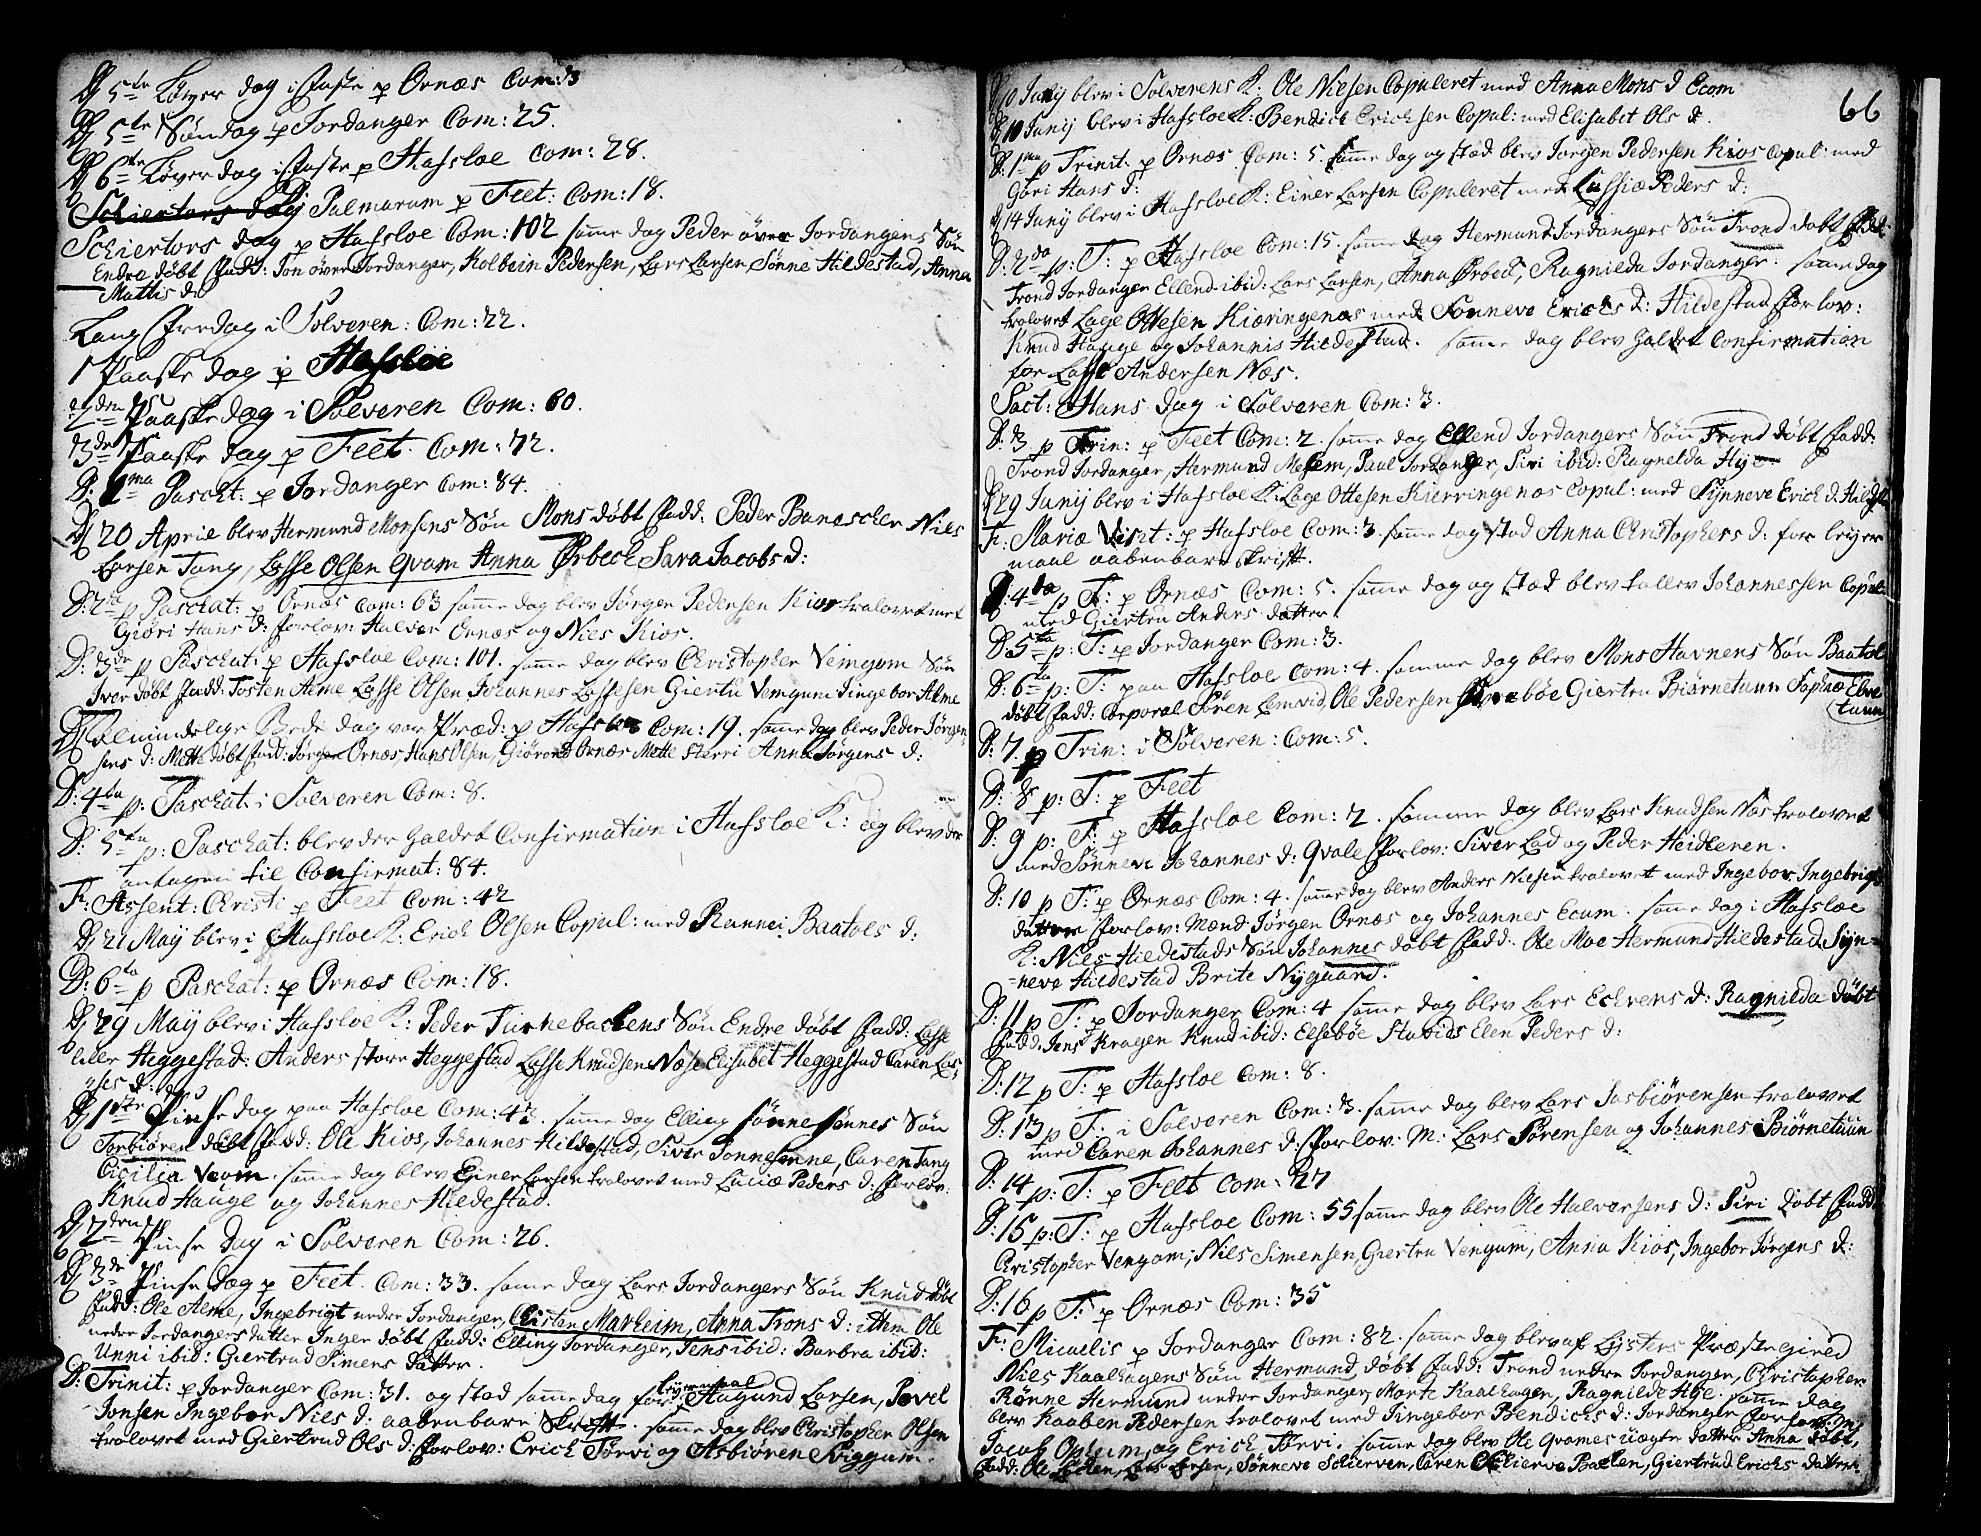 D 5te Løver dag i faste p Ornæs Com: 3
D 5te Søndag p Jordanger Com: 25.
D 6te Løverdag i faste p Hafsloe Com: 28.
Palmarum p Feet: Com: 18.
Schiertors dag p Hafsloe Com: 102 samme dag Peder øvre Jordangers Søn
Endre døbt fadd: Jon øvre Jordanger, Kolbein Pedersen, Lars Larsen, Sønne Hildestad, Anna
Mattis d:
Lang fredag i Solveren: Com: 22.
1 Paaske dag p Hafsloe
2den Paaske dag i Solveren Com: 60.
3de Paaske dag p Feet. Com: 72.
D: 1ma Paschat: p Jordanger Com: 84.
D 20 Aprie blev Hermund Monsens Søn Mons døbt fadd: Peder Banescher Niels
Larsen Tang, Lasse Olsen Qvam Anna Ørbech Sara Jacobs d:
D: 2da p Paschat: p Ornæs Com: 63 samme dag blev Jørgen Pedersen Kios trolovet met
Giøri Hans d: forlov: Halver Ornæs og Niels Kios.
D: 3de p Paschat: p Hafsloe Com: 101. samme dag blev Christopher Vemgum Søn
Iver døbt fadd: Tosten Alme Lasse Olsen Johannes Lassesen Giertru Vemgum Ingebor Alme
Almindelige Bede dag var Præd: p Hafsloe Com: 19. samme dag blev Peder Jørgen
sens d: Mette døbt fad: Jørgen Ornæs, Hans Olsen, Giøron Ornæs Mette Sterri Anna Jørgens d:
D: 4ta p: Paschat: i Solveren Com: 8.
D: 5ta p: Paschat: blev der holdet Confirmation i Hafsloe K: og blev der
antagen til Confirmat: 84.
F: Assent: Christi p Feet Com: 42
D, 21 May blev i Hafsloe K: Erich Olsen Copul: med Rannei Baatols d:
D: 6ta p Paschat: p Ornæs Com: 18.
D, 29 May blev i Hafsloe K: Peder Turnebachens Søn Endre døbt fadd: Lasse
lille Heggestad: Anders store Heggestad Lasse Knudsen Næse Elisabet Heggestad Caren Las,
ses d:
D 1ste Pinse dag paa Hafsloe Com: 42. samme dag Elling Sønnesønnes Søn
Torbiøren døbt fadd: Ole Kios, Johannes Hildestad, Siver Sønnesønne, Caren Tang
Cicilia Veom. samme dag blev Einer Larsen trolovet med Luciæ Peders d: forlov:
Knud Hauge og Johannes Hildestad.
D 2den Pinse dag i Solveren Com: 26.
D 3de Pinse dag p Feet. Com: 33. samme dag Lars Jordangers Søn Knud døbt
fadd: Ole Alme, Ingebrigt nedre Jordanger, Christen Marheim, Anna Trons d: ithm Ole
nedre Jordangers datter Inger døbt fadd: Elling Jordanger, Jens ibid: Barbra ibid:
Unni ibid: Giertrud Simens datter.
D: Trinit: p Jordanger Com: 31. og stod samme dag for leyermaal Haagund Larsen, Povel
Jonsen Ingebor Niels d: aabenbare Skrift. samme dag blev Christopher Olsen
trolovet med Giertrud Ols d: forlov: Erich Tørvi og Asbiøren Sviggum.
66
D, 10 Junij blev i Solverens K: Ole Nielsen Copuleret med Anna Mons d Ecom
D 10 Junij blev i Hafsloe K: Bendict Erichsen Copul: med Elisabet Ols d.
D: 1ma p Trinit: p Ornæs Com: 5. samme dag og stad blev Jørgen Pedersen Kios Copul: med
Giøri Hans d:
D, 14 Junij blev i Hafsloe K: Einer Larsen Copuleret med Lussiæ Peders d:
D: 2da p: T: p Hafsloe Com: 15. samme dag Hermund Jordangers Søn Trond døbt fadd:
Trond Jordanger Ellend ibid: Lars Larsen, Anna Ørbech, Ragnilda Jordanger. samme dag
trolovet Lage Ottesen Kiæringenæs med Sønneve Erichs d: Hildestad forlov:
Knud Hauge og Johannis Hildestad. samme dag blev holdet Confirmation
for Andersen Næs.
Sact: Hans dag i Solveren Com: 3.
D: 3 p Trin: p Feet Com: 2. samme dag Ellend Jordangers Søn Trond døbt fadd:
Trond Jordanger, Hermund Melem, Paul Jordanger, Siri ibid: Ragnelda Hye
D 29 Junij blev i Hafsloe K: Lage Ottesen Kierringenæs Copul: med Synneve Erich d. Hildest
F: Mariæ Visit: p Hafsloe Com: 3. samme dag stod Anna Christophers d: for leyer
maal aabenbare Skrift.
D: 4ta p T: p Ornæs Com: 5. samme dag og stæd blev Johannessen Copul:
med Giertru Anders datter.
D: 5ta p: T: p Jordanger Com: 3.
D: 6ta p: T: paa Hafsloe Com: 4. samme dag blev Mons Havnens Søn Baatol
døbt fadd: Corporal Søren Lemvid, Ole Pedersen Giertru Biørnetuun Sophiæ Elve
tuun
D: 7. p Trin: i Solveren: Com: 5.
D: 8 p: T: p Feet
D: 9 p: T: p Hafsloe Com: 2. samme dag blev Lars Knudsen Næs trolovet
med Sønneve Johannes d: Qvale forlov: Siver Lad og Peder Heidteren.
D: 10 p T: p Ornæs Com: 4. samme dag blev Anders Nielsen trolovet med Ingebor Ingebrigts
datter forlov: Mænd Jørgen Ornæs og Johannes Ecum. samme dag i Hafsloe
K: Niels Hildestads Søn Johannes døbt fadd: Ole Moe Hermund Hildestad Syn=
=neve Hildestad Brite Nygaard.
D: 11 p T: p Jordanger Com: 4 samme dag blev Lars Echrens d: Ragnilda døbt
fadd: Jens Kragen Knud ibid: Elsebøe Elen Peders d:
D: 12 p T: p Hafsloe Com: 8.
D: 13 p T: i Solveren Com: 3. samme dag blev Lars Sasbiørensen trolovet
med Caren Johannes d: forlov: M: Lars Sørensen og Johannes Biørnetuun
D: 14 p: T: p Feet Com: 27
D: 15 p: T: p Hafsloe Com: 55 samme dag blev Ole Halvorsens d: Siri døbt fadd:
Christopher Vengum, Niels Simensen, Giertru Vengum, Anna Kios, Ingebor Jørgens d:
D: 16 p T: p Ornæs Com: 35
F: Micaelis p Jordanger Com: 82. samme dag blev af Lysters Præstegield
Niels Kaalhagens Søn Hermund døbt fadd: Trond nedre Jordanger, Christopher
Rønne Hermund nedre Jordanger, Marte Kaalhagen, Ragnilde Hye. samme dag
blev Raaben Pedersen trolovet med Ingebor Bendichs d: Jordanger forlov: M:
Jacob Opheim og Erich Tørvi. samme dag blev Ole Qvames uægte datter Anna døbt,
fadd: Ole Lars Larsen, Sønneve Schierven, Caren Giertrud Erichs datter.